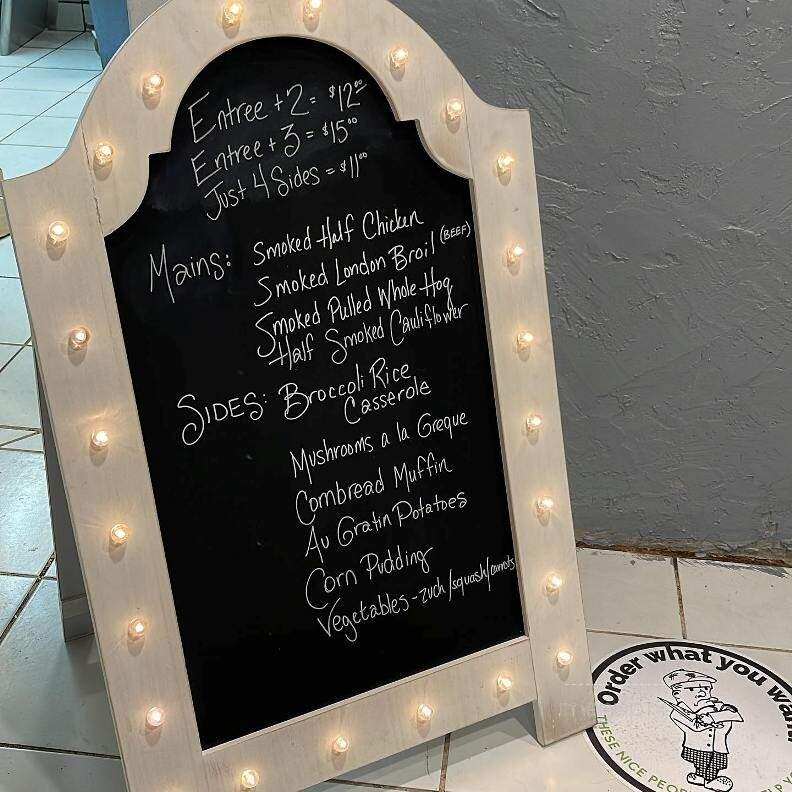 Entree + 2 = $12⁰⁰
Entree + 3 = $15⁰⁰
Just 4 Sides = $11⁰⁰
Mains: Smoked Half Chicken
Smoked London Broil (BEEF)
Smoked Pulled Whole Hog
Half Smoked Cauliflower
SIDES: Broccoli Rice
Casserole
Mushrooms a la Greque
Cornbread Muffin
Au Gratin Potatoes
Corn Pudding
Vegetables - zuch/squash/carrots
Order what you wan
THESE NICE PEOP